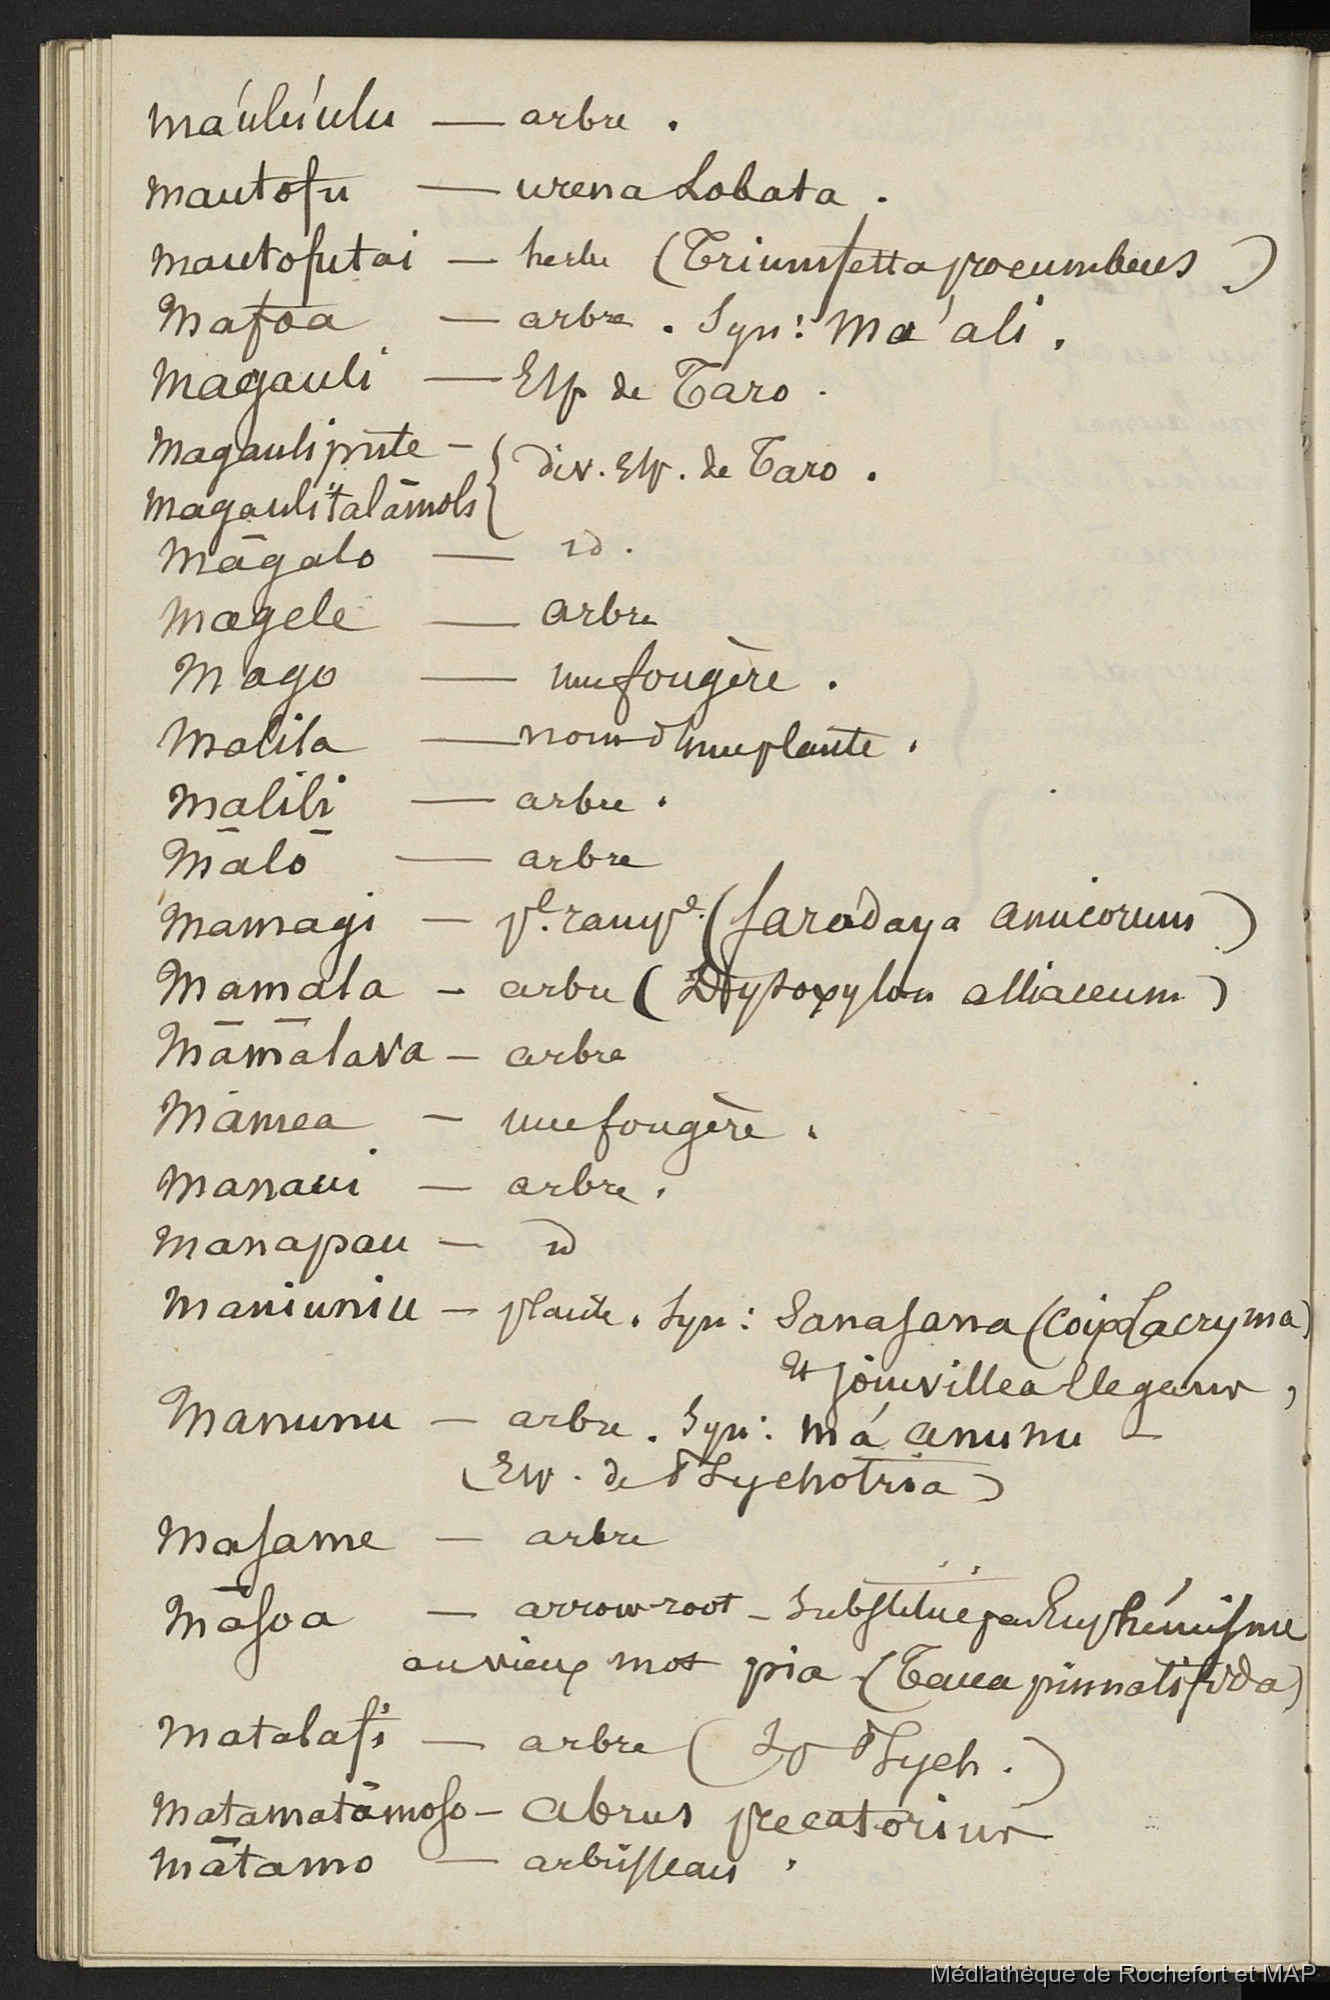 Ma'ulu'ulu — arbre.
Mautofu — urena Lobata.
Mautofutai — herbe (Triumfetta procumbens)
Mafoa — arbre. Syn: Ma'ali.
Magauli — Esp de Taro.
Magaulipute —
Magaulitalāmola { div. Esp. de Taro.
Māgalo — id.
Magele — arbre
Mago — une fougère.
Malila — nom d'une plante.
Malili — arbre.
Mālō — arbre
Mamagi — pl. rampe. (faradaya amicorum)
Mamala — arbre (Dysoxylon alliaceum)
Māmālava — arbre
Mamea — une fougère.
Manaui — arbre.
Manapau — id
Maniuniu — plante. Syn: Sanasana (Coix Lacryma)
et joinvillea Elegans,
Manunu — arbre. Syn: má anunu —
(Esp. de Psychotria)
Masame — arbre
Māsoa — arrow-root — substitué par Euphémisme
au vieux mot pia (Tacca pinnatifida)
Matalafi — arbre ( Psych.)
Matamatāmoso — Abrus precatorius
Mātamo — arbrisseau.
Médiathèque de Rochefort et MAP